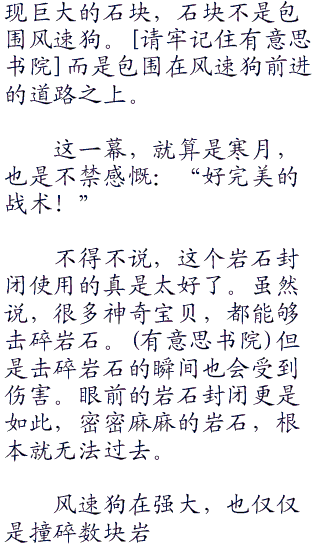 现巨大的石块，石块不是包
围风速狗。[请牢记住有意思
书院]而是包围在风速狗前进
的道路之上。
这一幕，就算是寒月，
也是不禁感慨：“好完美的
战术！”
不得不说，这个岩石封
闭使用的真是太好了。虽然
说，很多神奇宝贝，都能够
击碎岩石。(有意思书院)但
是击碎岩石的瞬间也会受到
伤害。眼前的岩石封闭更是
如此，密密麻麻的岩石，根
本就无法过去。
风速狗在强大，也仅仅
是撞碎数块岩